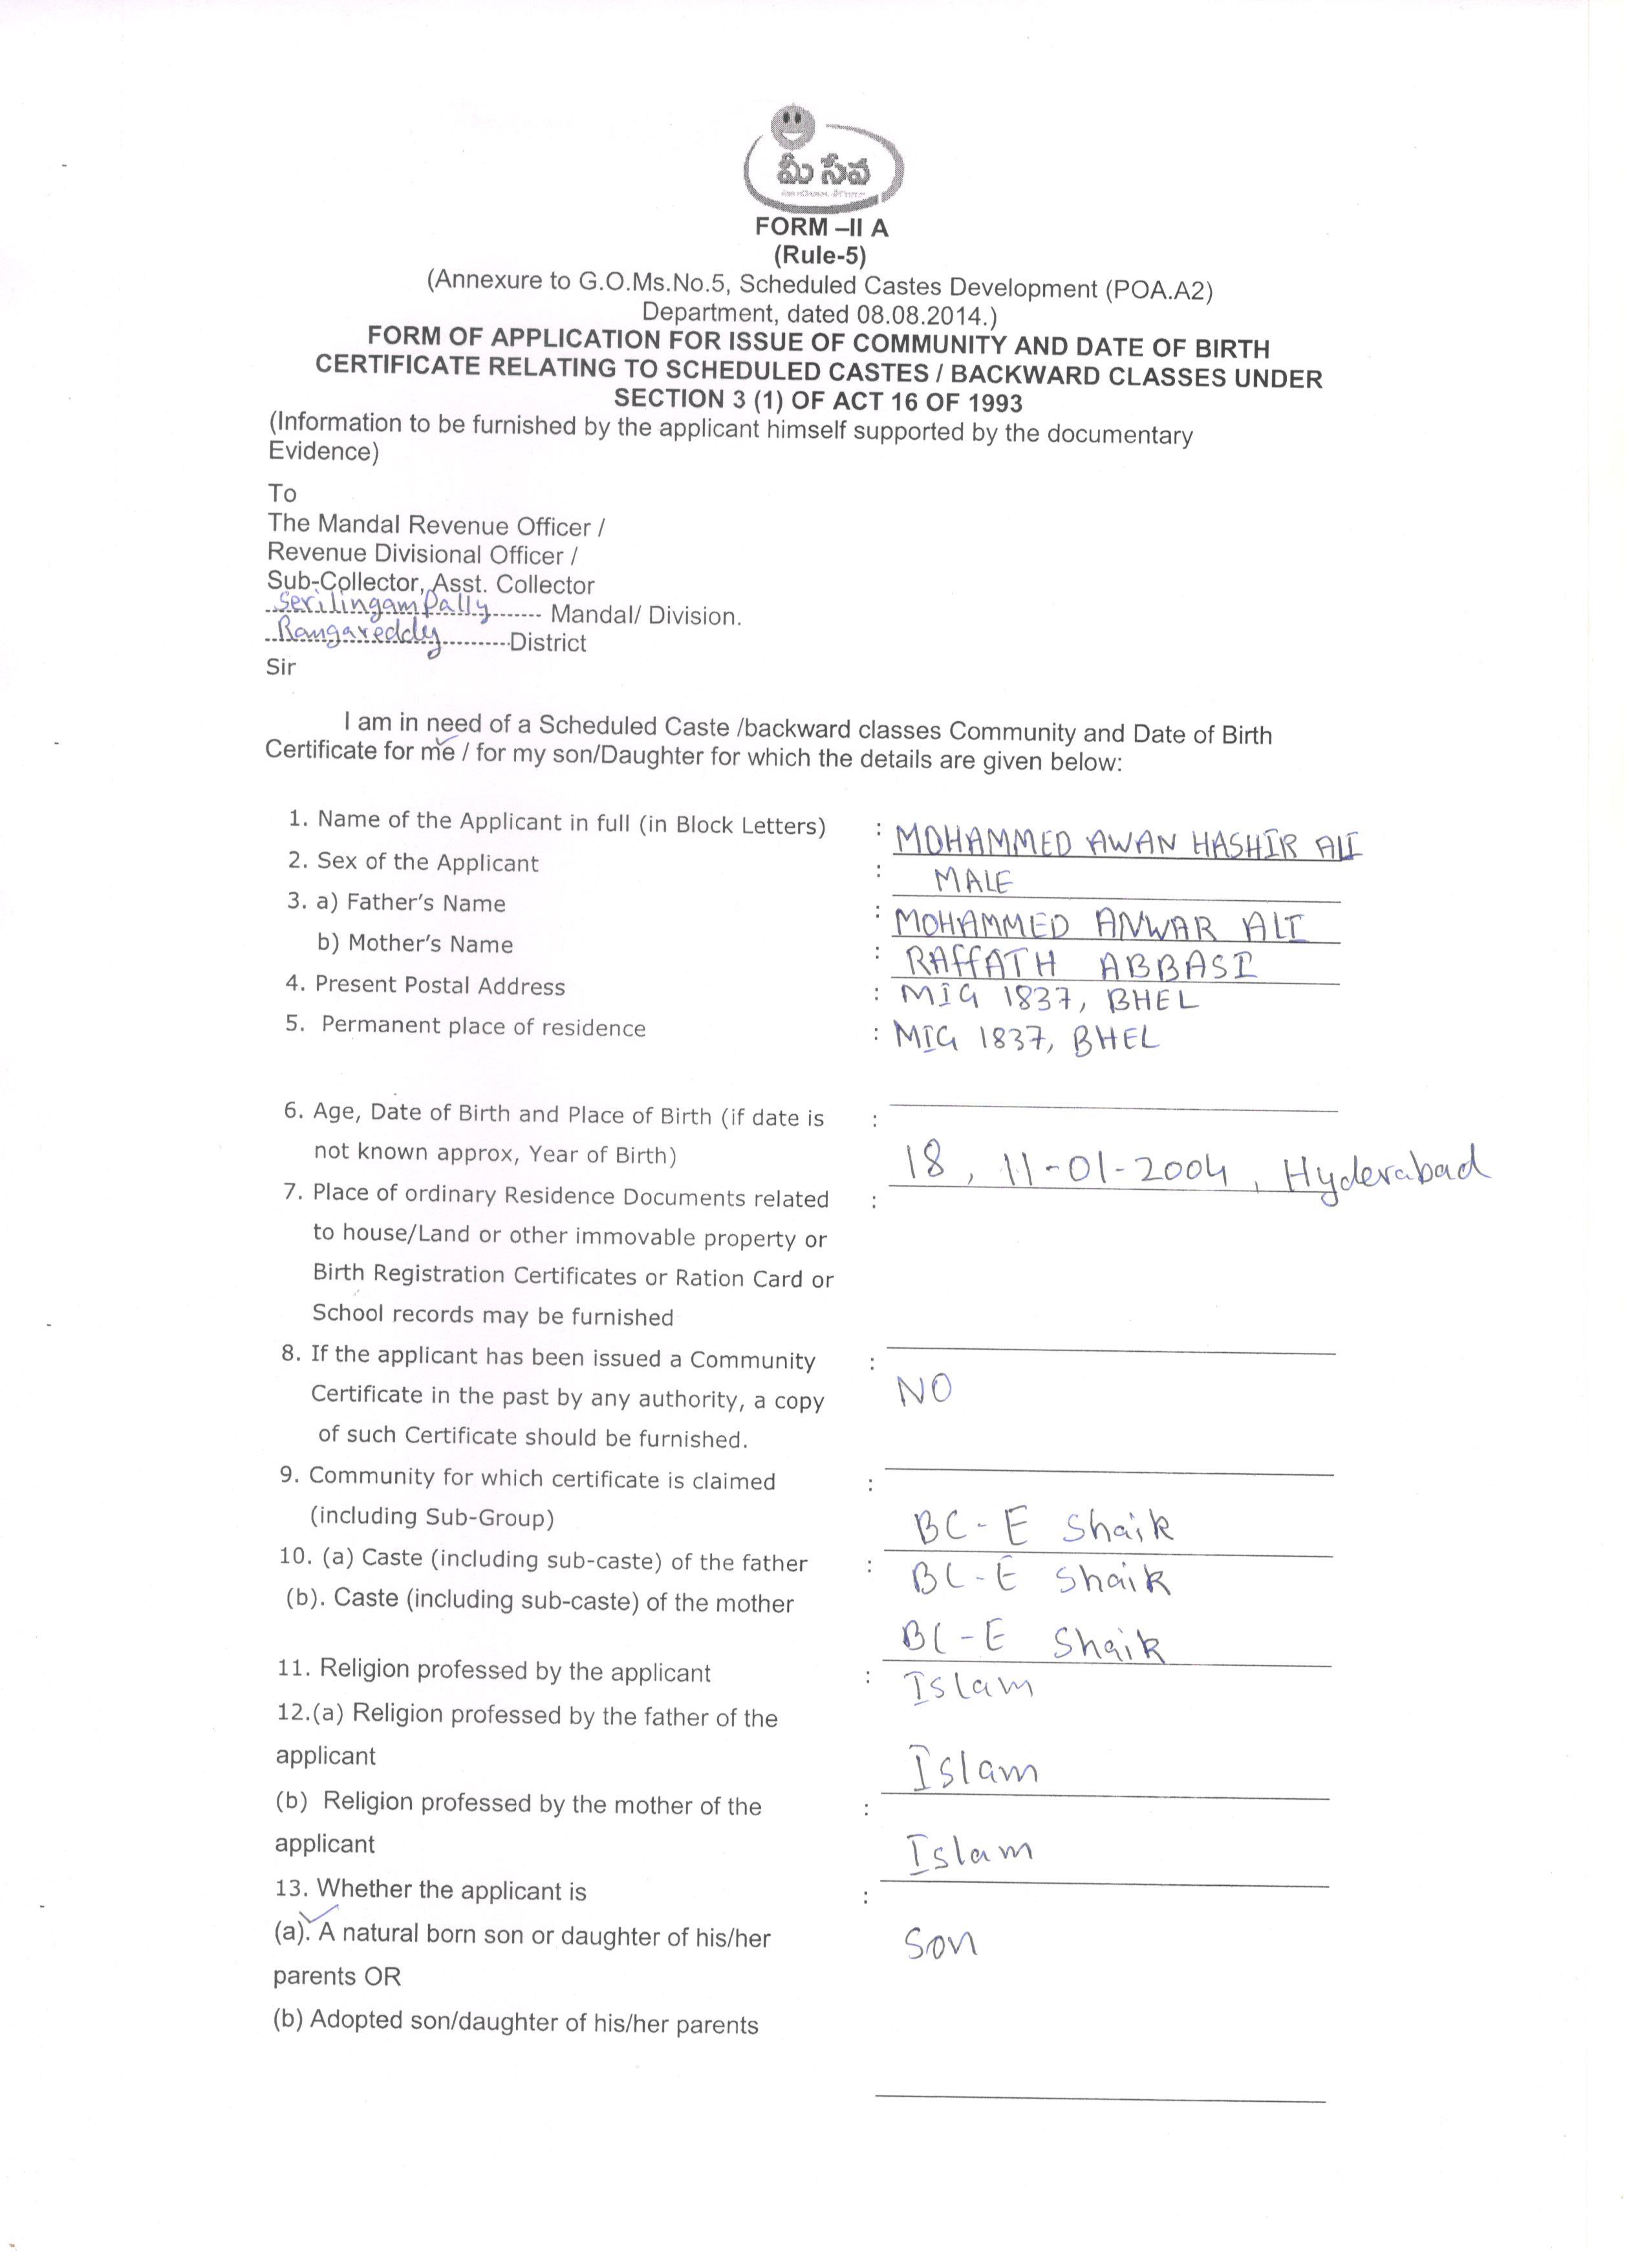 మీ సేవ
FORM –II A
(Rule-5)
(Annexure to G.O.Ms.No.5, Scheduled Castes Development (POA.A2)
Department, dated 08.08.2014.)
FORM OF APPLICATION FOR ISSUE OF COMMUNITY AND DATE OF BIRTH
CERTIFICATE RELATING TO SCHEDULED CASTES / BACKWARD CLASSES UNDER
SECTION 3 (1) OF ACT 16 OF 1993
(Information to be furnished by the applicant himself supported by the documentary
Evidence)
To
The Mandal Revenue Officer /
Revenue Divisional Officer /
Sub-Collector, Asst. Collector
SerilingamPally Mandal/ Division.
Rangareddy District
Sir
I am in need of a Scheduled Caste /backward classes Community and Date of Birth
Certificate for me / for my son/Daughter for which the details are given below:
1. Name of the Applicant in full (in Block Letters) : MOHAMMED AWAN HASHIR ALI
2. Sex of the Applicant : MALE
3. a) Father's Name : MOHAMMED ANWAR ALI
b) Mother's Name : RAFFATH ABBASI
4. Present Postal Address : MIG 1837, BHEL
5. Permanent place of residence : MIG 1837, BHEL
6. Age, Date of Birth and Place of Birth (if date is :
not known approx, Year of Birth) 18, 11-01-2004, Hyderabad
7. Place of ordinary Residence Documents related :
to house/Land or other immovable property or
Birth Registration Certificates or Ration Card or
School records may be furnished
8. If the applicant has been issued a Community :
Certificate in the past by any authority, a copy NO
of such Certificate should be furnished.
9. Community for which certificate is claimed :
(including Sub-Group) BC-E Shaik
10. (a) Caste (including sub-caste) of the father : BC-E Shaik
(b). Caste (including sub-caste) of the mother BC-E Shaik
11. Religion professed by the applicant : Islam
12.(a) Religion professed by the father of the
applicant Islam
(b) Religion professed by the mother of the :
applicant Islam
13. Whether the applicant is :
(a). A natural born son or daughter of his/her Son
parents OR
(b) Adopted son/daughter of his/her parents